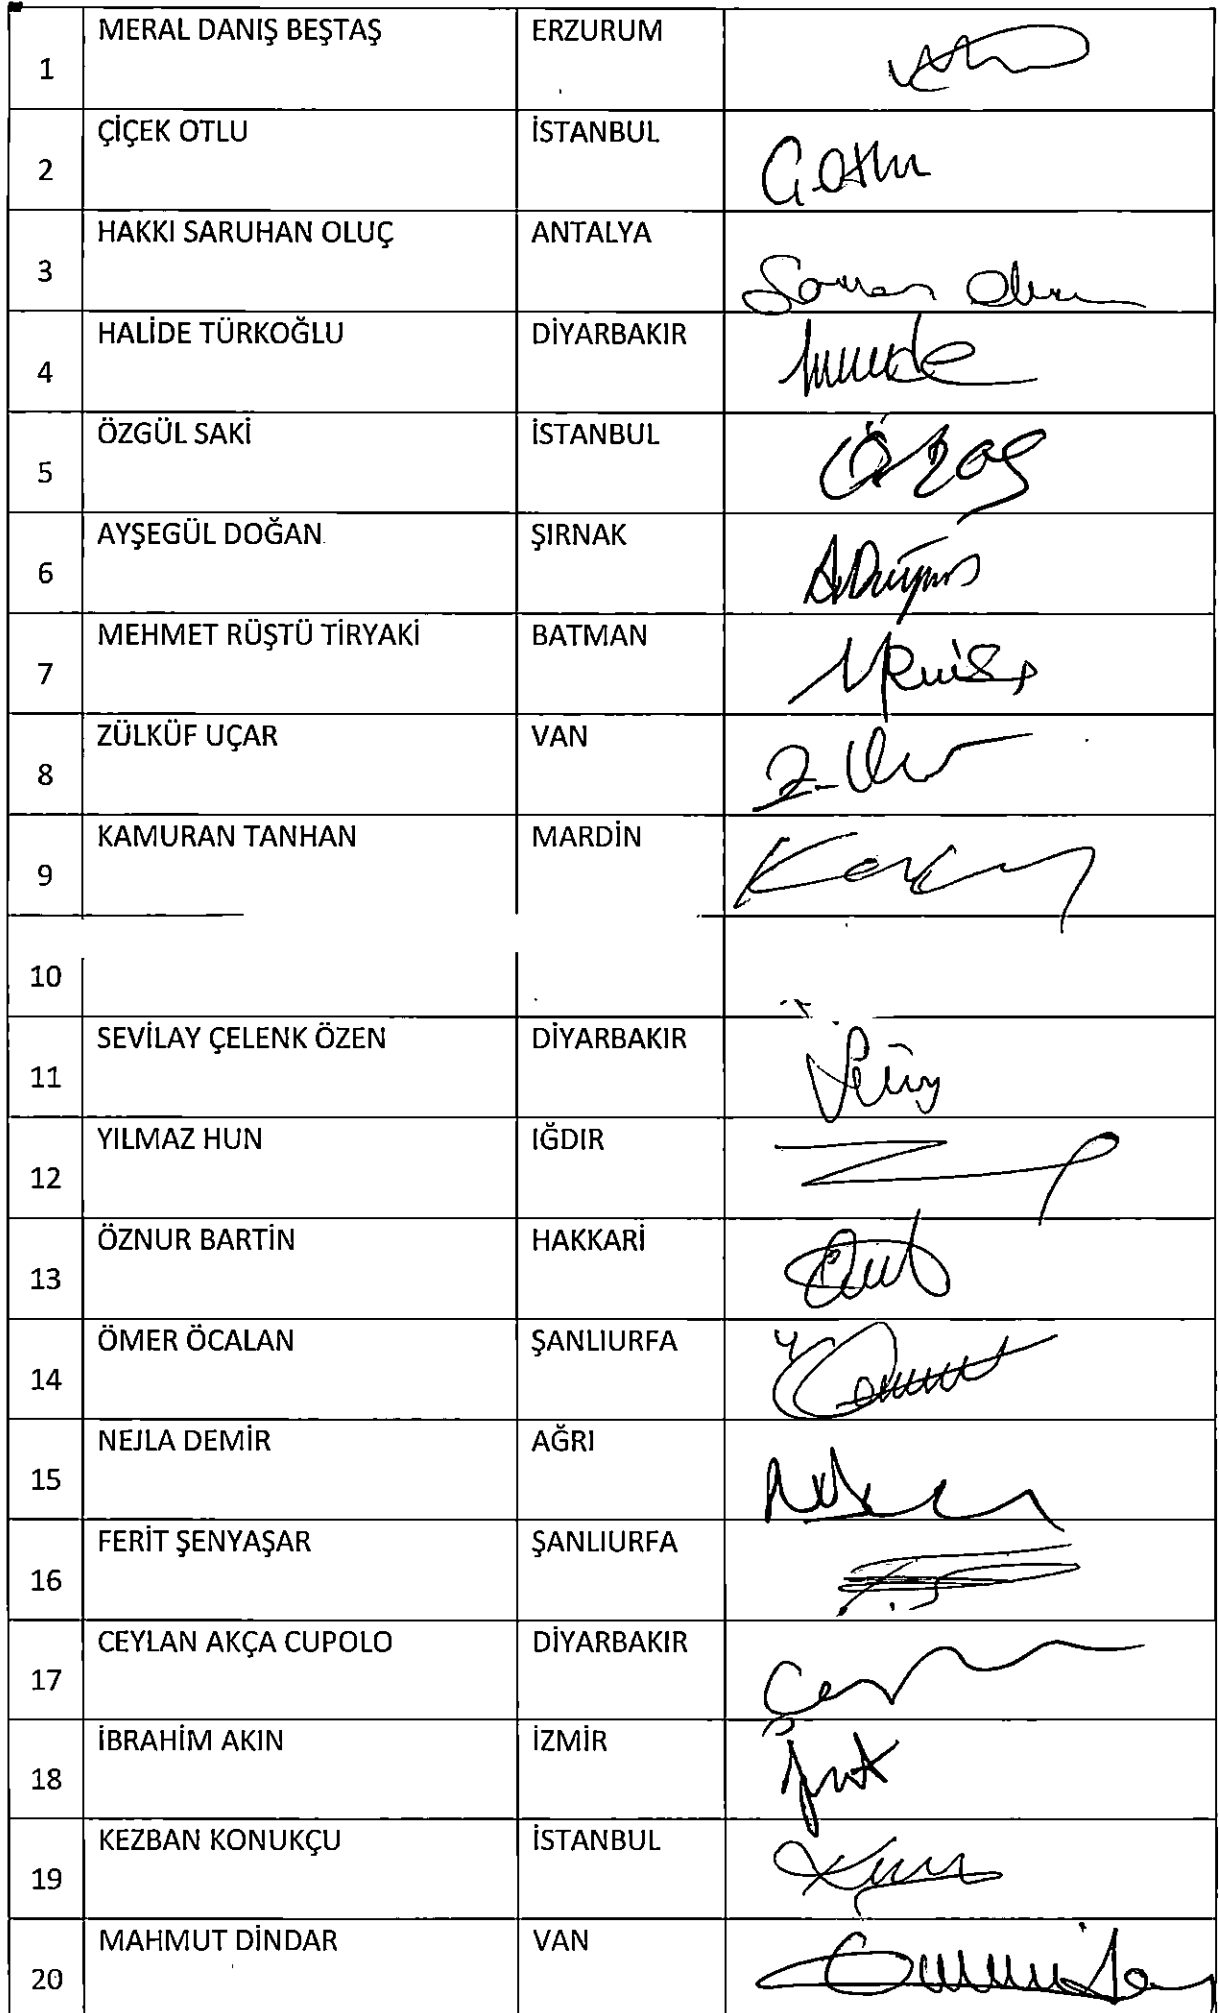 1 MERAL DANIŞ BEŞTAŞ ERZURUM
2 ÇİÇEK OTLU İSTANBUL
3 HAKKI SARUHAN OLUÇ ANTALYA
4 HALİDE TÜRKOĞLU DİYARBAKIR
5 ÖZGÜL SAKİ İSTANBUL
6 AYŞEGÜL DOĞAN ŞIRNAK
7 MEHMET RÜŞTÜ TİRYAKİ BATMAN
8 ZÜLKÜF UÇAR VAN
9 KAMURAN TANHAN MARDİN
10
11 SEVİLAY ÇELENK ÖZEN DİYARBAKIR
12 YILMAZ HUN IĞDIR
13 ÖZNUR BARTİN HAKKARİ
14 ÖMER ÖCALAN ŞANLIURFA
15 NEJLA DEMİR AĞRI
16 FERİT ŞENYAŞAR ŞANLIURFA
17 CEYLAN AKÇA CUPOLO DİYARBAKIR
18 İBRAHİM AKIN İZMİR
19 KEZBAN KONUKÇU İSTANBUL
20 MAHMUT DİNDAR VAN